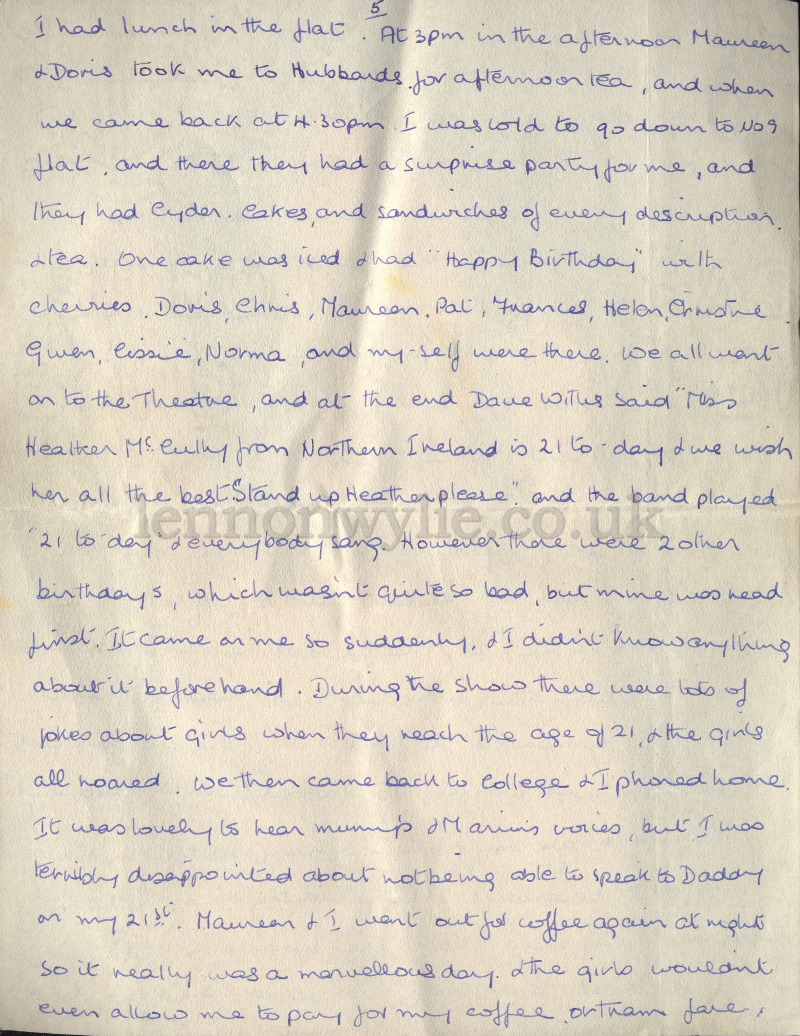 5
I had lunch in the flat. At 3pm in the afternoon Maureen
& Doris took me to Hubbards for afternoon tea, and when
we came back at 4.30pm I was told to go down to No 9
flat, and there they had a surprise party for me, and
they had Cyder. Cakes, and sandwiches of every description.
& tea. One cake was iced & had "Happy Birthday" with
cherries. Doris, Chris, Maureen. Pat, Frances, Helen, Christine
Gwen, Cissie, Norma, and my-self were there. We all went
on to the Theatre, and at the end Dave said "Miss
Heather McCully from Northern Ireland is 21 to-day & we wish
her all the best. Stand up Heather please". and the band played
lennonwylie.co.uk
"21 to-day" & everybody sang. However there were 2 other
birthdays, which wasn't quite so bad, but mine was read
first. It came on me so suddenly, & I didn't know anything
about it beforehand. During the show there were lots of
jokes about girls when they reach the age of 21, & the girls
all roared. We then came back to College & I phoned home.
It was lovely to hear mum's & voices, but I was
terribly disappointed about not being able to speak to Daddy
on my 21st. Maureen & I went out for coffee again at night
so it really was a marvellous day. & the girls wouldn't
even allow me to pay for my coffee or tram fare,